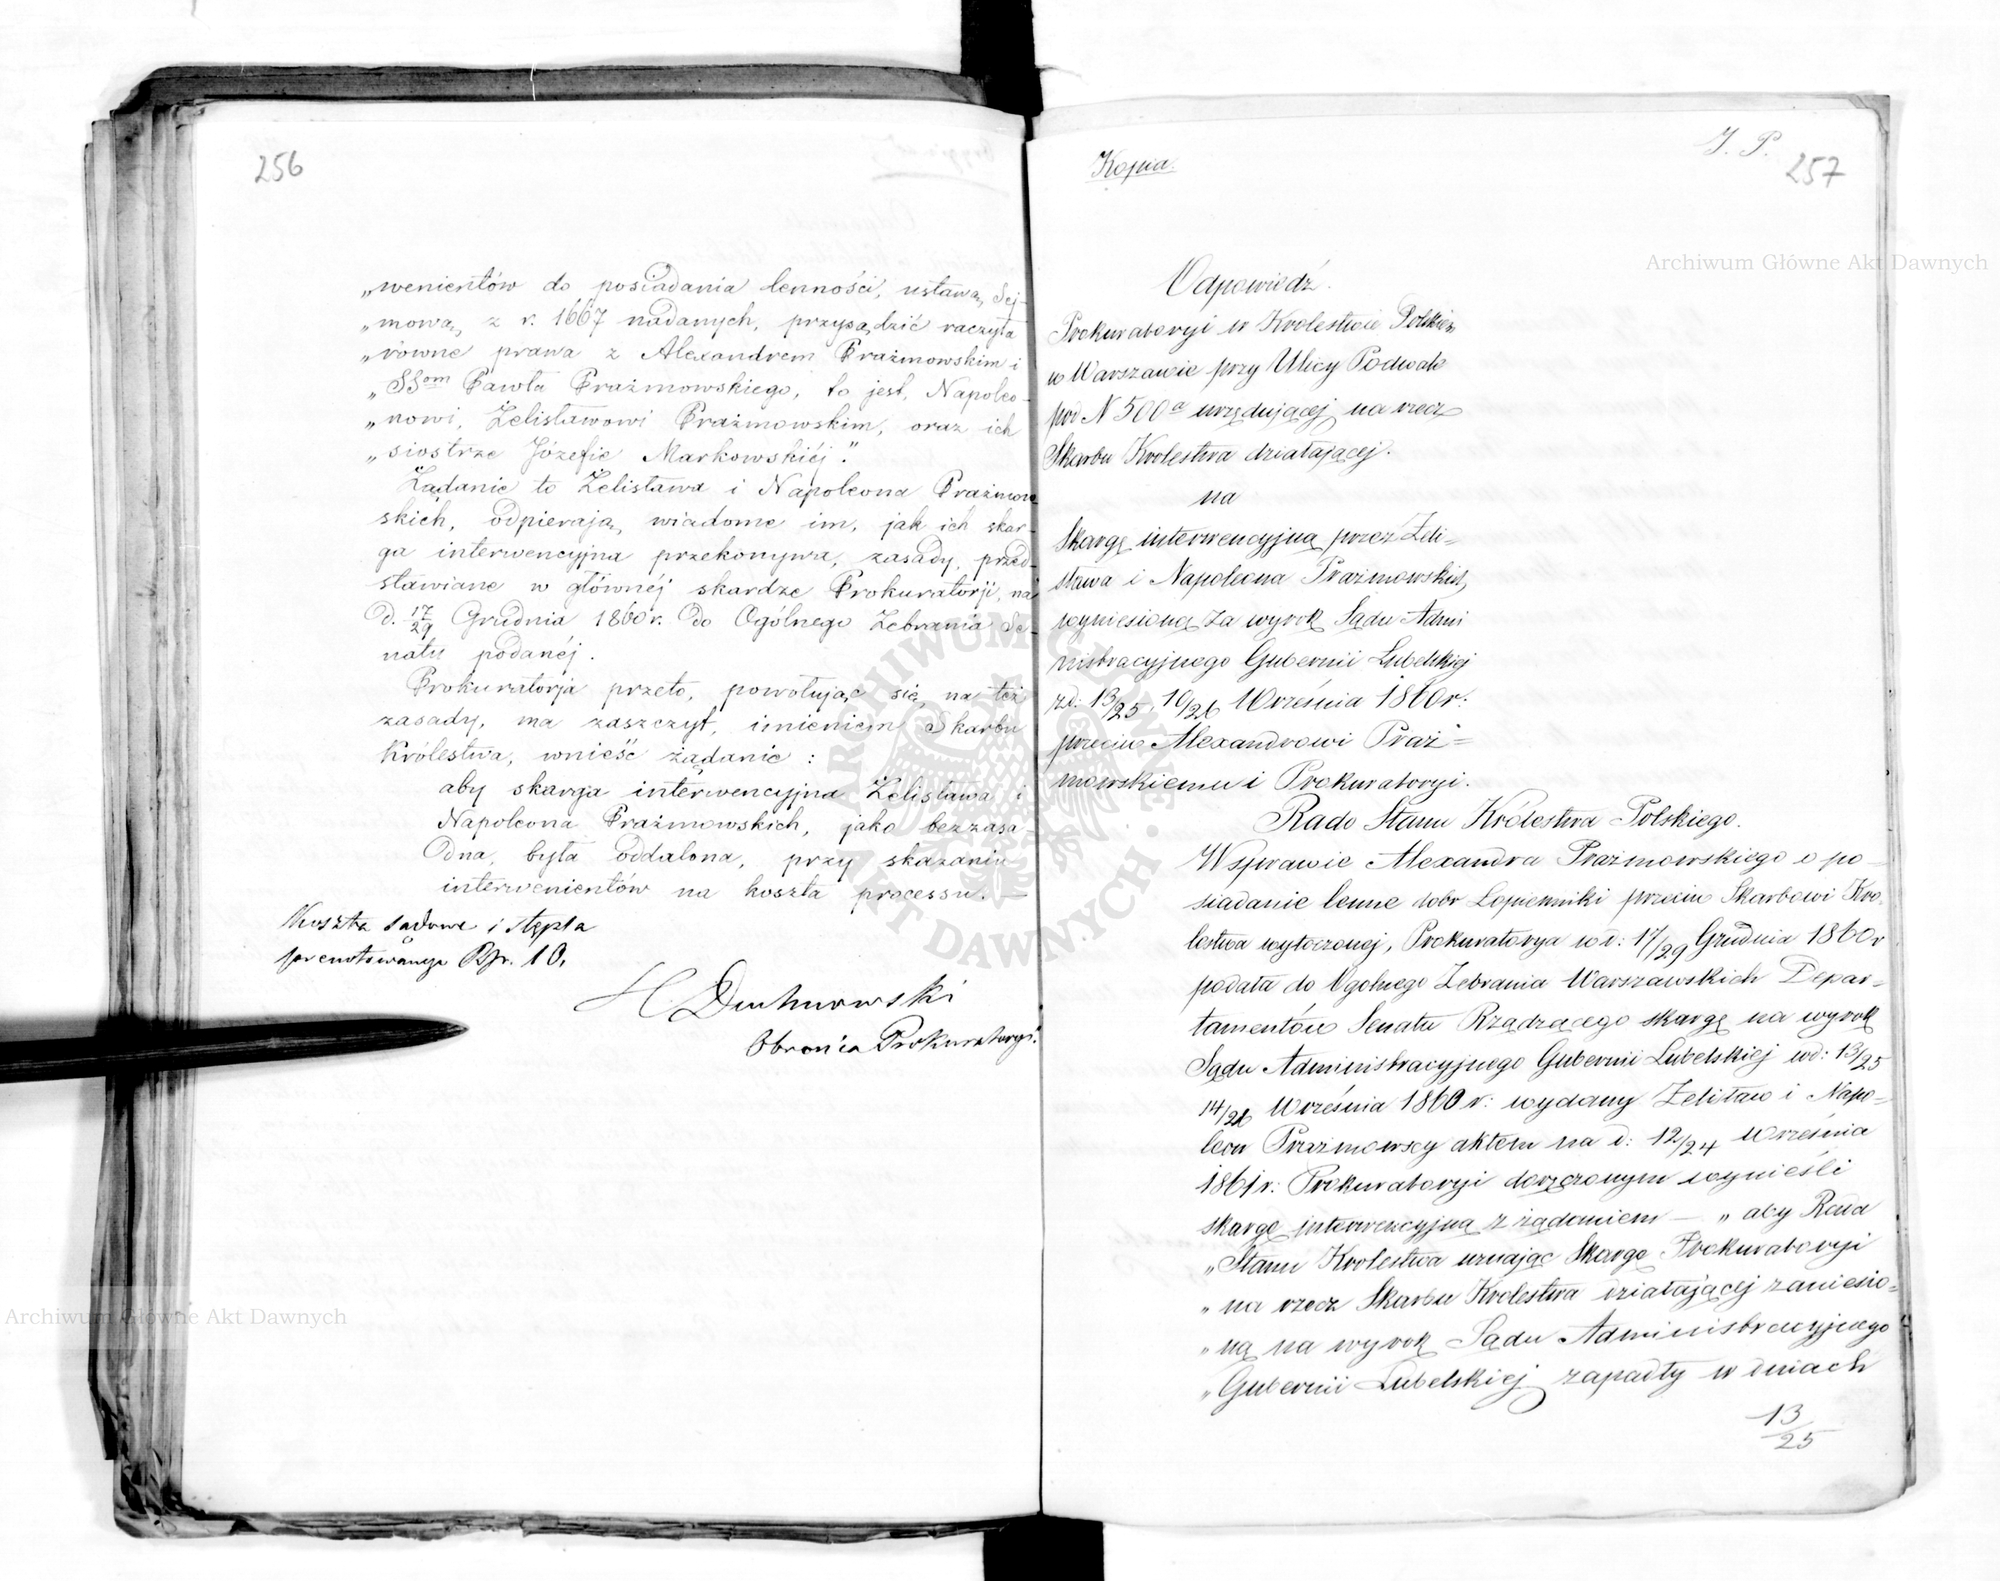 256
„wenientów do posiadania lenności, ustawą Sej-
„mową z r. 1667 nadanych, przysądzić raczyła
„równe prawa z Alexandrem Prażmowskim i
„SSom Pawła Prażmowskiego, to jest, Napoleo-
„nowi, Żelisławowi Prażmowskim, oraz ich
„siostrze Józefie Markowskiéj."
Żądanie to Żelisława i Napoleona Prażmow
skich, odpierają wiadome im, jak ich skar-
ga interwencyjna przekonywa, zasady, przed-
stawiane w głównéj skardze Prokuratorji, na
d. 17/29 Grudnia 1860 r. do Ogólnego Zebrania Se-
natu podanéj.
Prokuratorja przeto, powołując się na też
zasady, ma zaszczyt, imieniem Skarbu
Królestwa, wnieść żądanie :
aby skarga interwencyjna Żelisława i
Napoleona Prażmowskich, jako bezzasa-
dna, była oddalona, przy skazaniu
interwenientów na koszta processu. —
Koszta sądowe i stępla
prenotowanego Rsr. 10.
H Duchnowski
Obrońca Prokuratoryi
Kopia.
J. P.
257
Odpowiedź.
Prokuratoryi w Krolestwie Polskiem
w Warszawie przy Ulicy Podwale
pod N 500 a urzędującej na rzecz
Skarbu Krolestwa działającej.
na
Skargę interwencyjną przez Zeli=
sława i Napoleona Prażmowskich,
wyniesioną za wyrok Sądu Admi
nistracyjnego Gubernii Lubelskiej
z d: 13/25, 16/26 Września 1860 r:
przeciw Alexandrowi Praż=
mowskiemu i Prokuratoryi.
Rado Stanu Królestwa Polskiego.
W sprawie Alexandra Prażmowskiego o po-
siadanie lenne dobr Łopienniki przeciw Skarbowi Kro-
lestwa wytoczonej, Prokuratorya w d: 17/29 Grudnia 1860 r
podała do Ogolnego Zebrania Warszawskich Depar-
tamentów Senatu Rządzącego skargę na wyrok
Sądu Administracyjnego Gubernii Lubelskiej w d: 13/25
14/26 Września 1860 r: wydany Zelisław i Napo-
leon Prażmowscy aktem na d: 12/24 Września
1861 r: Prokuratoryi doręczonym wynieśli
skargę interwencyjną z żądaniem — „aby Rada
„Stanu Krolestwa uznając Skargę Prokuratoryi
„na rzecz Skarbu Krolestwa działającej zaniesio-
„ną na wyrok Sądu Administracyjnego
„Gubernii Lubelskiej zapadły w dniach
13/25
Archiwum Główne Akt Dawnych
Archiwum Główne Akt Dawnych
ARCHIWUM GŁÓWNE AKT DAWNYCH